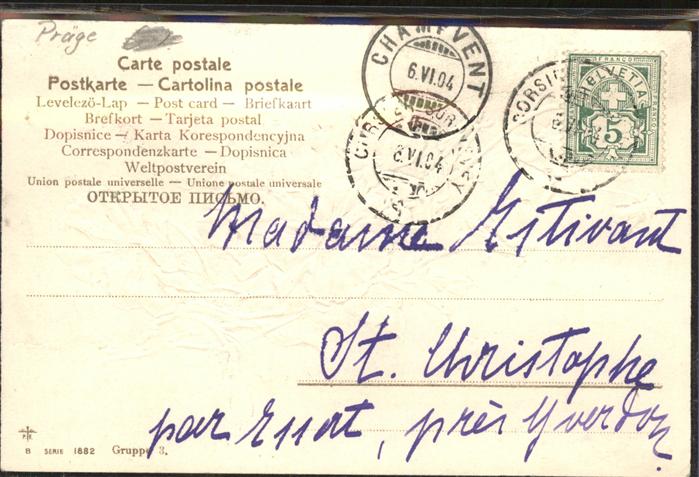 Präge
Carte postale
Postkarte — Cartolina postale
Levelező-Lap — Post card — Briefkaart
Brefkort — Tarjeta postal
Dopisnice — Karta Korespondencyjna
Correspondenzkarte — Dopisnica
Weltpostverein
Union postale universelle — Unione postale universale
ОТКРЫТОЕ ПИСЬМО.
CHAMPVENT
6.VI.04
6.VI.04
FRANCO
HELVETIA
5
Madame Estivant
St. Christophe
par Essert, près Yverdon
B SERIE 1882 Gruppe 3.